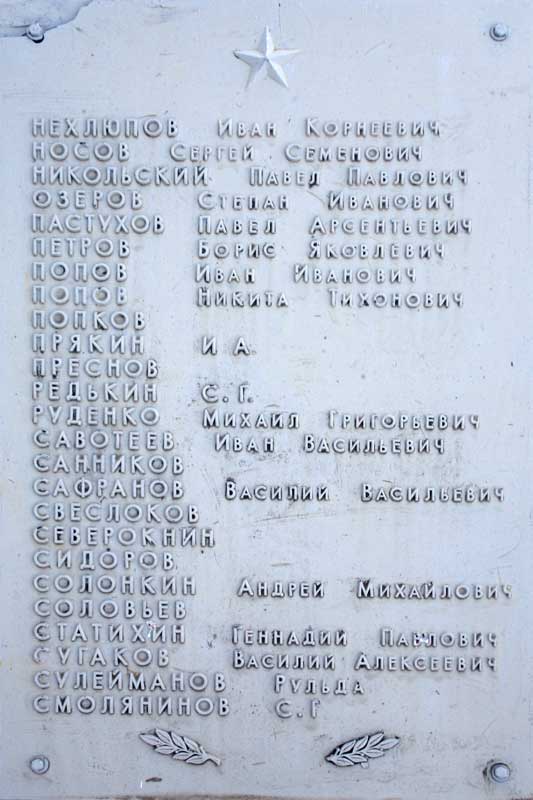 НЕХЛЮПОВ ИВАН КОРНЕЕВИЧ
НОСОВ СЕРГЕЙ СЕМЕНОВИЧ
НИКОЛЬСКИЙ ПАВЕЛ ПАВЛОВИЧ
ОЗЕРОВ СТЕПАН ИВАНОВИЧ
ПАСТУХОВ ПАВЕЛ АРСЕНТЬЕВИЧ
ПЕТРОВ БОРИС ЯКОВЛЕВИЧ
ПОПОВ ИВАН ИВАНОВИЧ
ПОПОВ НИКИТА ТИХОНОВИЧ
ПОПКОВ
ПРЯКИН И А.
ПРЕСНОВ
РЕДЬКИН С. Г.
РУДЕНКО МИХАИЛ ГРИГОРЬЕВИЧ
САВОТЕЕВ ИВАН ВАСИЛЬЕВИЧ
САННИКОВ
САФРАНОВ ВАСИЛИЙ ВАСИЛЬЕВИЧ
СВЕСЛОКОВ
СЕВЕРОКНИН
СИДОРОВ
СОЛОНКИН АНДРЕЙ МИХАЙЛОВИЧ
СОЛОВЬЕВ
СТАТИХИН ГЕННАДИЙ ПАВЛОВИЧ
СУГАКОВ ВАСИЛИЙ АЛЕКСЕЕВИЧ
СУЛЕЙМАНОВ РУЛЬДА
СМОЛЯНИНОВ С. Г